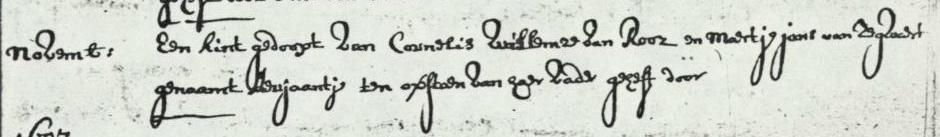 Novemb: Een kint gedoopt van Cornelis Willemse van Rooz en Maertje jans van
genaamt Neujaantje ten opsien van haer vader geheft door